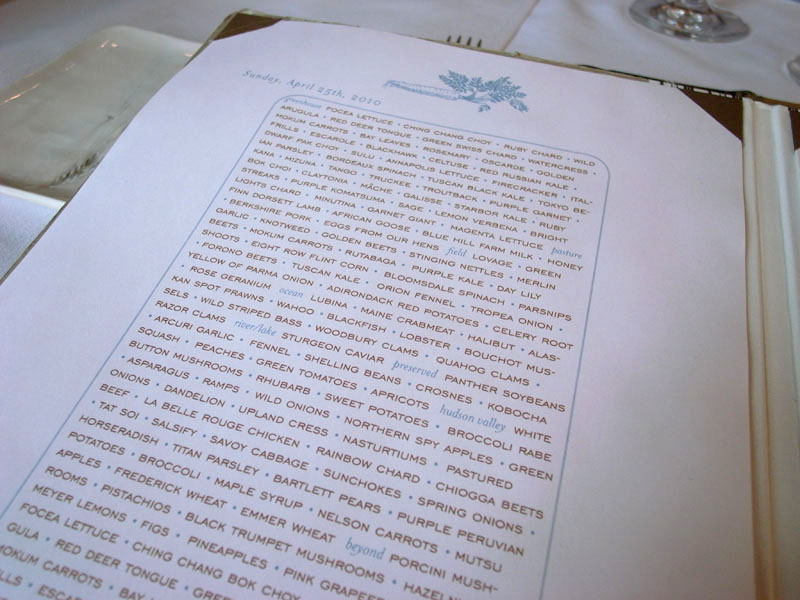 Sunday, April 25th, 2010
greenhouse FOCEA LETTUCE • CHING CHANG CHOY • RUBY CHARD • WILD
ARUGULA • RED DEER TONGUE • GREEN SWISS CHARD • WATERCRESS •
MOKUM CARROTS • BAY LEAVES • ROSEMARY • OSCARDE • GOLDEN
FRILLS • ESCAROLE • BLACKHAWK • CELTUSE • RED RUSSIAN KALE •
DWARF PAK CHOY • SULU • ANNAPOLIS LETTUCE • FIRECRACKER • ITAL-
IAN PARSLEY • BORDEAUX SPINACH • TUSCAN BLACK KALE • TOKYO BE-
KANA • MIZUNA • TANGO • TRUCKEE • TROUTBACK • PURPLE GARNET •
BOK CHOI • CLAYTONIA • MÂCHE • GALISSE • STARBOR KALE • RUBY
STREAKS • PURPLE KOMATSUMA • SAGE • LEMON VERBENA • BRIGHT
LIGHTS CHARD • MINUTINA • GARNET GIANT • MAGENTA LETTUCE pasture
FINN DORSETT LAMB • AFRICAN GOOSE • BLUE HILL FARM MILK • HONEY
• BERKSHIRE PORK • EGGS FROM OUR HENS field LOVAGE • GREEN
GARLIC • KNOTWEED • GOLDEN BEETS • STINGING NETTLES • MERLIN
BEETS • MOKUM CARROTS • RUTABAGA • PURPLE KALE • DAY LILY
SHOOTS • EIGHT ROW FLINT CORN • BLOOMSDALE SPINACH • PARSNIPS
• FORONO BEETS • TUSCAN KALE • ORION FENNEL • TROPEA ONION •
YELLOW OF PARMA ONION • ADIRONDACK RED POTATOES • CELERY ROOT
• ROSE GERANIUM ocean LUBINA • MAINE CRABMEAT • HALIBUT • ALAS-
KAN SPOT PRAWNS • WAHOO • BLACKFISH • LOBSTER • BOUCHOT MUS-
SELS • WILD STRIPED BASS • WOODBURY CLAMS • QUAHOG CLAMS •
RAZOR CLAMS river/lake STURGEON CAVIAR preserved PANTHER SOYBEANS
• ARCURI GARLIC • FENNEL • SHELLING BEANS • CROSNES • KOBOCHA
SQUASH • PEACHES • GREEN TOMATOES • APRICOTS hudson valley WHITE
BUTTON MUSHROOMS • RHUBARB • SWEET POTATOES • BROCCOLI RABE
• ASPARAGUS • RAMPS • WILD ONIONS • NORTHERN SPY APPLES • GREEN
ONIONS • DANDELION • UPLAND CRESS • NASTURTIUMS • PASTURED
BEEF • LA BELLE ROUGE CHICKEN • RAINBOW CHARD • CHIOGGA BEETS
• TAT SOI • SALSIFY • SAVOY CABBAGE • SUNCHOKES • SPRING ONIONS •
HORSERADISH • TITAN PARSLEY • BARTLETT PEARS • PURPLE PERUVIAN
POTATOES • BROCCOLI • MAPLE SYRUP • NELSON CARROTS • MUTSU
APPLES • FREDERICK WHEAT • EMMER WHEAT beyond PORCINI MUSH-
ROOMS • PISTACHIOS • BLACK TRUMPET MUSHROOMS • HAZELN
MEYER LEMONS • FIGS • PINEAPPLES • PINK GRAPEF
FOCEA LETTUCE • CHING CHANG BOK CHOY
GULA • RED DEER TONGUE • GREE
MOKUM CARROTS • BAY
LLS • ESCAR